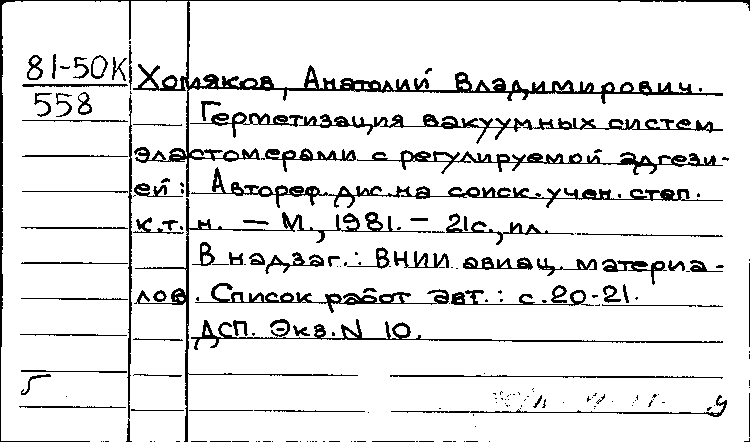 81-50К
558
Хомяков, Анатолий Владимирович.
Герметизация вакуумных систем
эластомерами с регулируемой адгези-
ей: Автореф. дис. на соиск. учен. степ.
к.т.н. — М., 1981. — 21с., ил.
В надзаг.: ВНИИ авиац. материа-
лов. Список работ авт.: с.20-21.
ДСП. Экз. N 10.